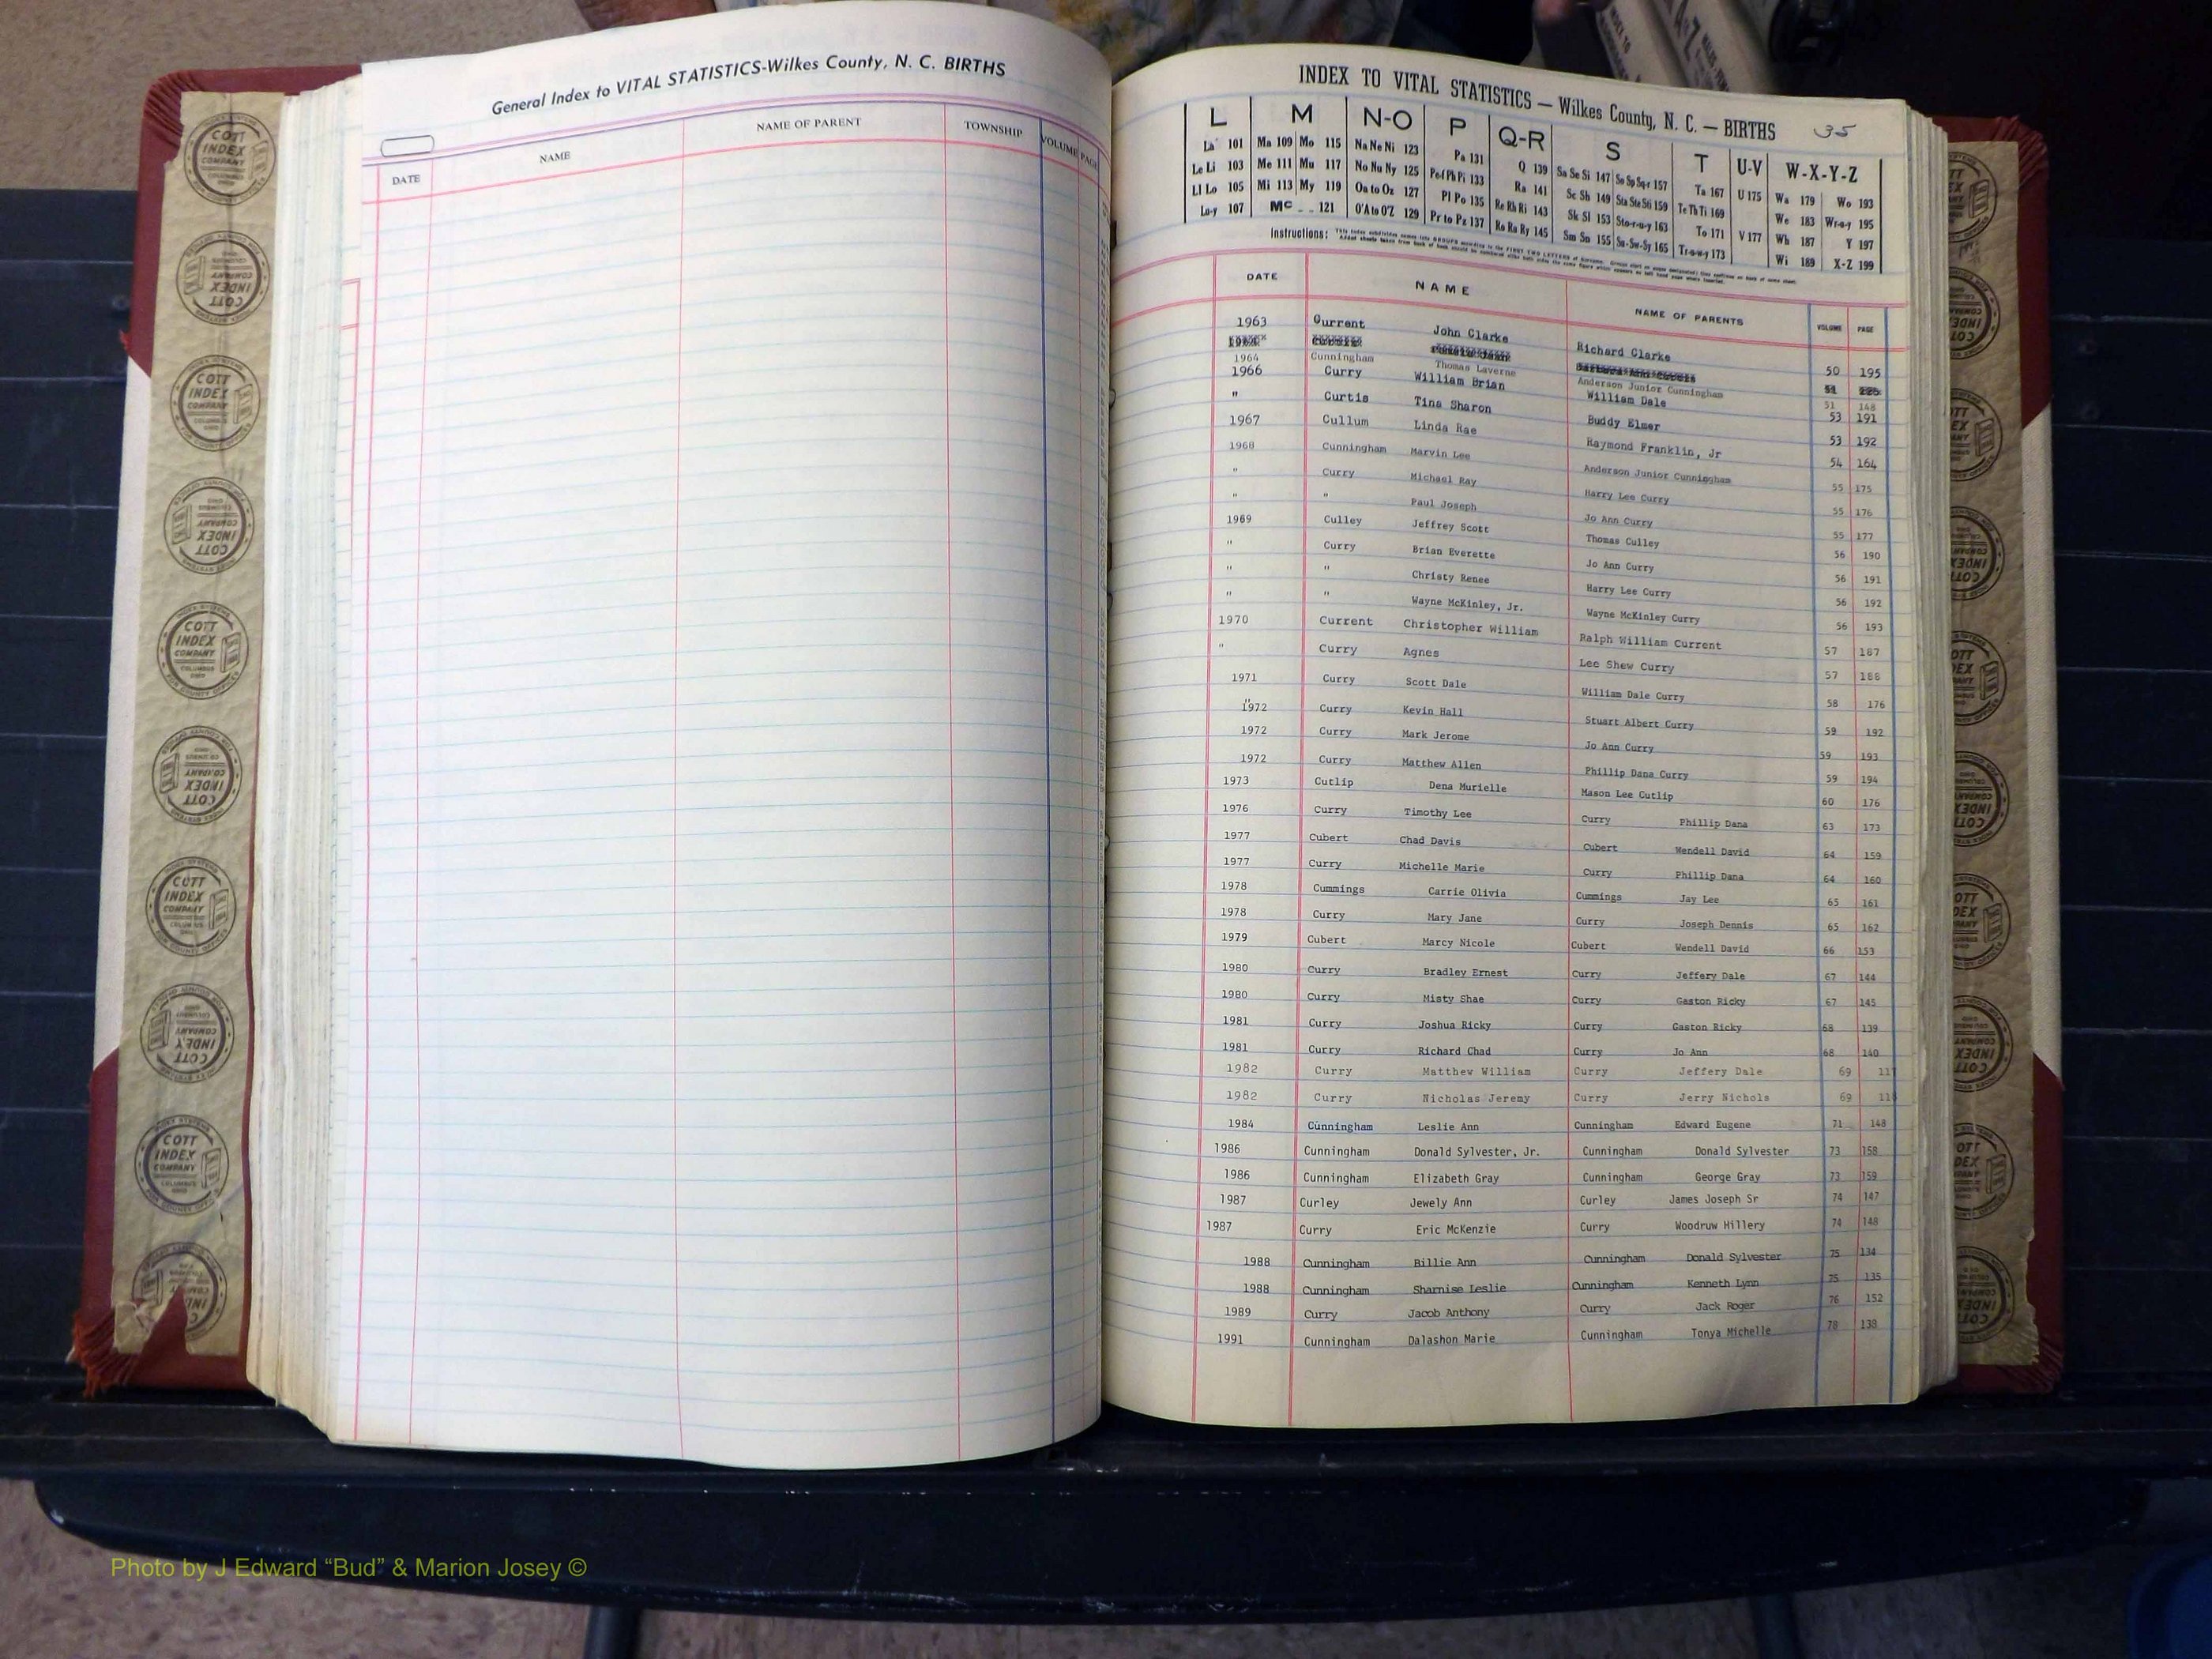 General Index to VITAL STATISTICS-Wilkes County, N. C. BIRTHS
DATE NAME NAME OF PARENT TOWNSHIP VOLUME PAGE
INDEX TO VITAL STATISTICS — Wilkes County, N. C. — BIRTHS 35
L M N-O P Q-R S T U-V W-X-Y-Z
La 101 Ma 109 Mo 115 Na Ne Ni 123 Pa 131 Q 139 Sa Se Si 147 So Sp Sq-r 157 Ta 167 U 175 Wa 179 Wo 193
Le Li 103 Me 111 Mu 117 No Nu Ny 125 Pe-f Ph Pi 133 Ra 141 Sc Sh 149 Sta Ste Sti 159 Te Th Ti 169 We 183 Wr-u-y 195
Ll Lo 105 Mi 113 My 119 Oa to Oz 127 Pl Po 135 Re Rh Ri 143 Sk Sl 153 Sto-r-u-y 163 To 171 V 177 Wh 187 Y 197
Lu-y 107 Mc 121 O'A to O'Z 129 Pr to Pz 137 Ro Ru Ry 145 Sm Sn 155 Su-Sw-Sy 165 Tr-u-w-y 173 Wi 189 X-Z 199
Instructions:
DATE NAME NAME OF PARENTS VOLUME PAGE
1963 Current John Clarke Richard Clarke 50 195
1964 Cunningham Thomas Laverne Anderson Junior Cunningham 51 148
1966 Curry William Brian William Dale 53 191
" Curtis Tina Sharon Buddy Elmer 53 192
1967 Cullum Linda Rae Raymond Franklin, Jr 54 164
1968 Cunningham Marvin Lee Anderson Junior Cunningham 55 175
" Curry Michael Ray Harry Lee Curry 55 176
" " Paul Joseph Jo Ann Curry 55 177
1969 Culley Jeffrey Scott Thomas Culley 56 190
" Curry Brian Everette Jo Ann Curry 56 191
" " Christy Renee Harry Lee Curry 56 192
" " Wayne McKinley, Jr. Wayne McKinley Curry 56 193
1970 Current Christopher William Ralph William Current 57 187
" Curry Agnes Lee Shew Curry 57 188
1971 Curry Scott Dale William Dale Curry 58 176
" 1972 Curry Kevin Hall Stuart Albert Curry 59 192
1972 Curry Mark Jerome Jo Ann Curry 59 193
1972 Curry Matthew Allen Phillip Dana Curry 59 194
1973 Cutlip Dena Murielle Mason Lee Cutlip 60 176
1976 Curry Timothy Lee Curry Phillip Dana 63 173
1977 Cubert Chad Davis Cubert Wendell David 64 159
1977 Curry Michelle Marie Curry Phillip Dana 64 160
1978 Cummings Carrie Olivia Cummings Jay Lee 65 161
1978 Curry Mary Jane Curry Joseph Dennis 65 162
1979 Cubert Marcy Nicole Cubert Wendell David 66 153
1980 Curry Bradley Ernest Curry Jeffery Dale 67 144
1980 Curry Misty Shae Curry Gaston Ricky 67 145
1981 Curry Joshua Ricky Curry Gaston Ricky 68 139
1981 Curry Richard Chad Curry Jo Ann 68 140
1982 Curry Matthew William Curry Jeffery Dale 69 117
1982 Curry Nicholas Jeremy Curry Jerry Nichols 69 118
1984 Cunningham Leslie Ann Cunningham Edward Eugene 71 148
1986 Cunningham Donald Sylvester, Jr. Cunningham Donald Sylvester 73 158
1986 Cunningham Elizabeth Gray Cunningham George Gray 73 159
1987 Curley Jewely Ann Curley James Joseph Sr 74 147
1987 Curry Eric McKenzie Curry Woodruw Hillery 74 148
1988 Cunningham Billie Ann Cunningham Donald Sylvester 75 134
1988 Cunningham Sharnise Leslie Cunningham Kenneth Lynn 75 135
1989 Curry Jacob Anthony Curry Jack Roger 76 152
1991 Cunningham Dalashon Marie Cunningham Tonya Michelle 78 138
COTT INDEX COMPANY
Photo by J Edward “Bud” & Marion Josey ©